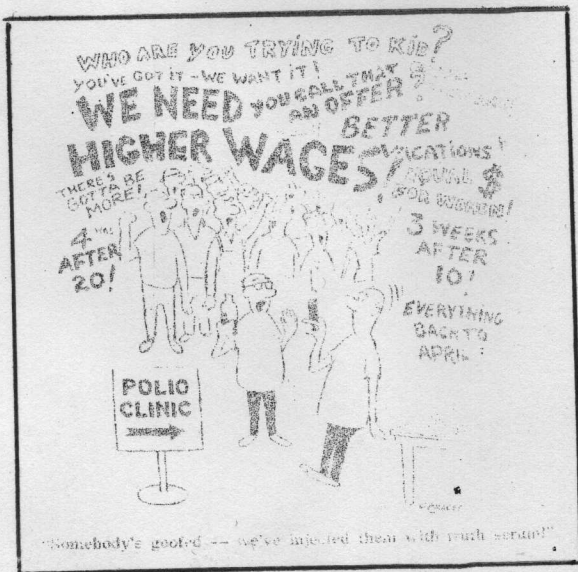 WHO ARE YOU TRYING TO KID?
YOU'VE GOT IT - WE WANT IT!
WE NEED
YOU CALL THAT
AN OFFER?
HIGHER WAGES!
BETTER
VACATIONS!
EQUAL $
FOR WOMEN!
THERE'S
GOTTA BE
MORE!
4 WKS
AFTER
20!
3 WEEKS
AFTER
10!
EVERYTHING
BACK TO
APRIL!
POLIO
CLINIC
"Somebody's goofed -- we've injected them with truth serum!"